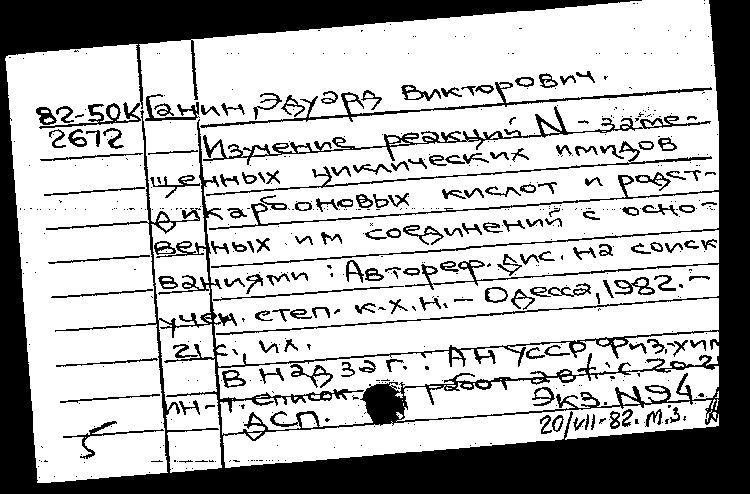 82-50К Ганин, Эдуард Викторович.
2672
Изучение реакций N-заме-
щенных циклических имидов
дикарбоновых кислот и родст-
венных им соединений с осно-
ваниями: Автореф. дис. на соиск
учен. степ. к.х.н. – Одесса, 1982. –
21 с., ил.
В надзаг.: АН УССР, Физ.-хим
ин-т. Список работ авт.: с. 20-21
ДСП. Экз. N94.
5
20/VII-82. М.З.